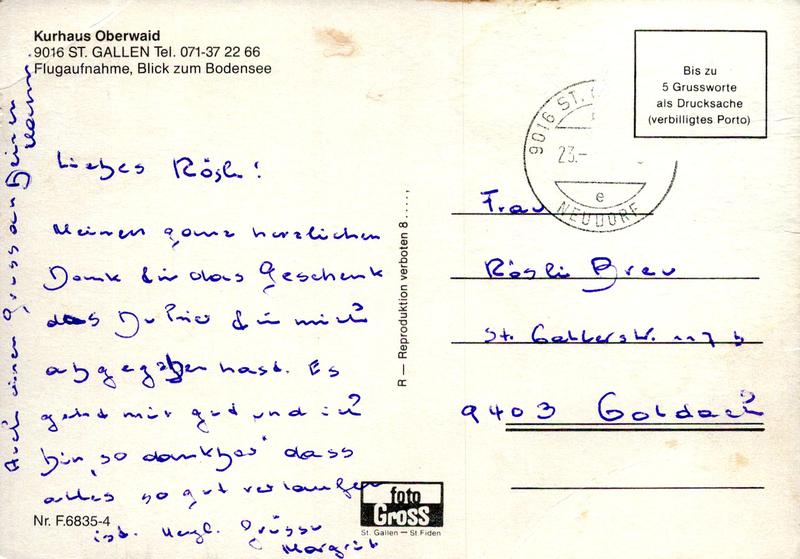 Kurhaus Oberwaid
9016 ST. GALLEN Tel. 071-37 22 66
Flugaufnahme, Blick zum Bodensee
Liebes Rösli!
Meinen ganz herzlichen
Dank für das Geschenk
das Du für mich
abgegeben hast. Es
geht mir gut und ich
bin so dankbar dass
alles so gut verlaufen
ist. Herzl. Grüsse
Margrit
Auch einen Gruss an Deinen
Mann
Nr. F.6835-4
R — Reproduktion verboten 8.....,
foto
Gross
St. Gallen — St. Fiden
Bis zu
5 Grussworte
als Drucksache
(verbilligtes Porto)
9016 ST.
23.-
e
NEUDORF
Frau
Rösli
St. Gallerstr. 117 b
9403 Goldach